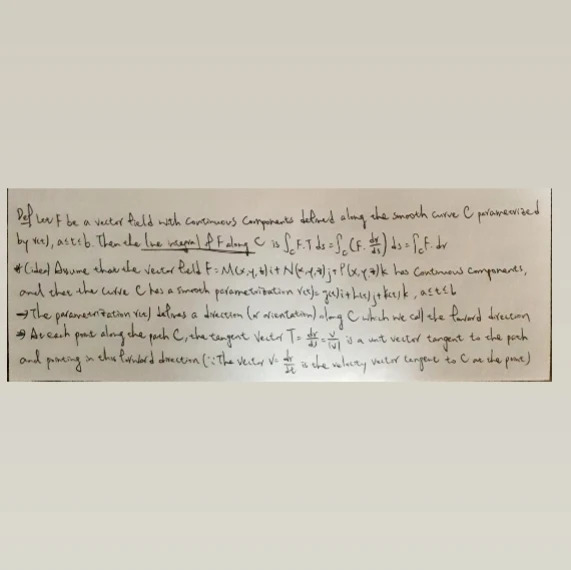 Def Let F be a vector field with continuous components defined along the smooth curve C parametrized
by r(t), a≤t≤b. Then the line integral of F along C is ∫_C F·T ds = ∫_C (F · dr/ds) ds = ∫_C F·dr
* (idea) Assume that the vector field F = M(x,y,z)i + N(x,y,z)j + P(x,y,z)k has continuous components,
and that the curve C has a smooth parametrization r(t) = g(t)i + h(t)j + k(t)k, a≤t≤b
→ The parametrization r(t) defines a direction (or orientation) along C which we call the forward direction
→ At each point along the path C, the tangent vector T = dr/ds = v/|v| is a unit vector tangent to the path
and pointing in this forward direction (∵ The vector v = dr/dt is the velocity vector tangent to C at the point)